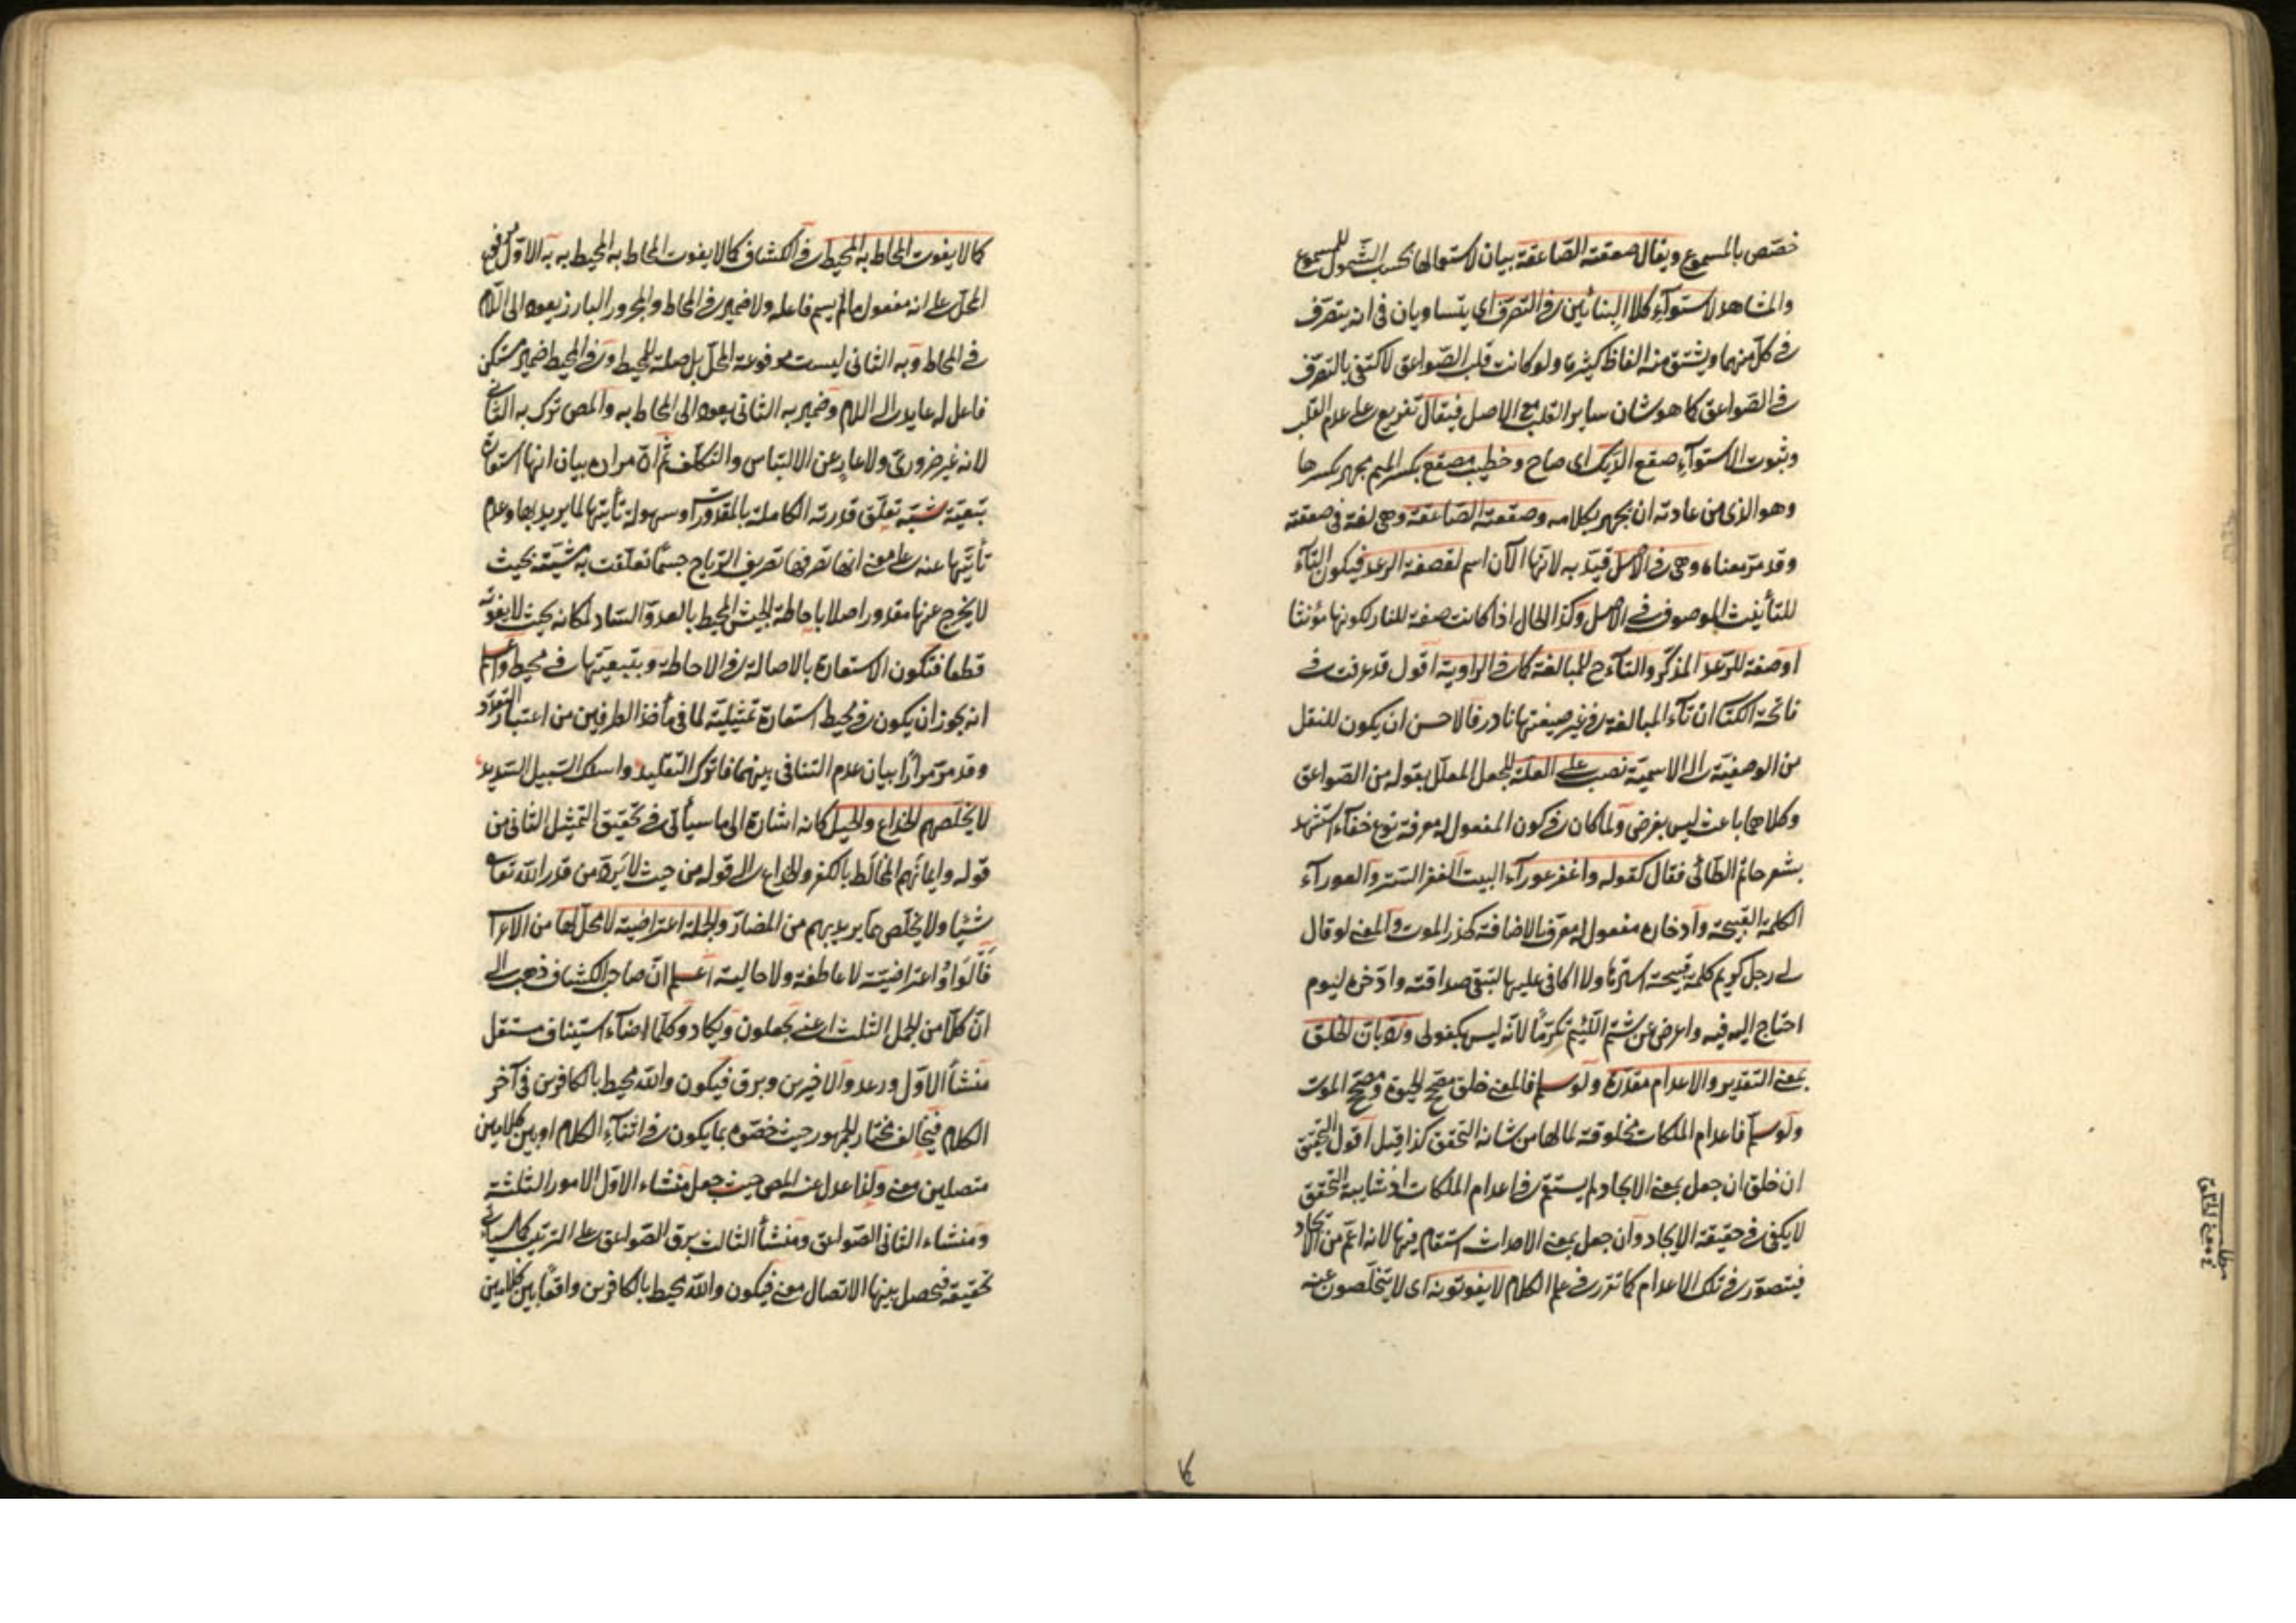 خصّص بالمسموع ويقال صعقته الصّاعقة بيان لاستعمالها بحسب الشّمول للمسموع
والمشاهد لاستوآء كلا البنائين في التصرّف اى يتساويان فى انه يتصرّف
فى كلّ منهما ويشتق منه الفاظ كثيرة ولو كانت قلب الصّواعق لاكتفى بالتصرّف
فى الصّواعق كما هو شان ساير القلب مع الاصل فيقال تفريع على عدم القلب
وثبوت الاستوآء صقع الدّيك اى صاح وخطيب مصقع بكسر الميم مجهر بكسرها
وهو الذى من عادته ان يجهر بكلامه وصقعته الصّاعقة وهى لغة فى صعقته
وقد مرّ معناه وهى فى الاصل قيّد به لانّها الآن اسم لقصفة الرعد فيكون التآء
للتأنيث الموصوف فى الاصل وكذا الحال اذا كانت صفة للنار لكونها مؤنثا
او صفة للرّعد المذكّر والتآء ح للمبالغة كما فى الراوية اقول قد عرفت فى
فاتحة الكتاب ان تآء المبالغة فى غير صيغتها نادر فالاحسن ان يكون للنقل
من الوصفيّة الى الاسميّة نصب على العلّة للجعل المعلّل بقوله من الصّواعق
وكلاهما باعث ليس بغرض ولما كان فى كون المفعول له معرفة نوع خفآء استشهد
بشعر حاتم الطآئى فقال كقوله واغفر عورآء البيت الغفر الستر والعورآء
الكلمة القبيحة وادخاره مفعول له معرّف بالاضافة كحذر الموت والمعنى لو قال
لى رجل كريم كلمة قبيحة استرها ولا اكافى عليها لتبقى صداقته وادّخره ليوم
احتاج اليه فيه واعرض عن شتم اللئيم تكرّما لانّه ليس بكفو لى وردّ بانّ الخلق
بمعنى التقدير والاعدام مقدّرة ولو سلم فالمعنى خلق مصحّح الحيوة ومصحّح الموت
ولو سلم فاعدام الملكات مخلوقة لما لها من شانه التحقق كذا قيل اقول التحقيق
ان خلق ان جعل بمعنى الايجاد لم يستقم فى اعدام الملكات اذ شايبة التحقق
لا يكفى فى حقيقة الايجاد وان جعل بمعنى الاحداث استقام فيها لانه اعمّ من الايجاد
فيتصوّر فى تلك الاعدام كما تقرر فى علم الكلام لا يفوتونه اى لا يتخلّصون عنه
مطلب
كما لا يفوت المحاط به المحيط فى الكشاف كما لا يفوت المحاط به المحيط به به الاوّل مرفوع
المحلّ على انه مفعول ما لم يسم فاعله ولا ضمير فى المحاط والمجرور البارز يعود الى اللام
فى المحاط وبه الثانى ليست مرفوعة المحلّ بل صلة للمحيط وفى المحيط ضمير مستكن
فاعل له عايد الى اللام وضمير به الثانى يعود الى المحاط به والمص ترك به الثانى
لانه غير ضرورىّ ولا عار عن الالتباس والتكلّف ثم انّ مراده بيان انها استعارة
تبعيّة شبّه تعلّق قدرته الكاملة بالمقدورات وسهولة تأتيها لما يريد بها وعدم
تأبّيها عنه على معنى انها تصرفها تصريف الرّياح جسما تعلّقت به مشيّته بحيث
لا يخرج عنها مقدور اصلا باحاطة الجيش المحيط بالعدوّ السّاد لمكانه بحيث لا يفوته
قطعا فتكون الاستعارة بالاصالة فى الاحاطة وبتبعيّتها فى محيط واعلم
انه يجوز ان يكون فى محيط استعارة تمثيليّة لما فى مأخذ الطرفين من اعتبار التعدّد
وقد مرّ مرارًا بيان عدم التنافى بينهما فاترك التقليد واسلك السّبيل السّديد
لا يخلّصهم الخداع والحيل كانه اشارة الى ما سيأتى فى تحقيق التمثيل الثانى من
قوله وايمانهم المخالط بالكفر والخداع الى قوله من حيث لا يردّ من قدر الله تعالى
شيئا ولا يخلّص مما يريد بهم من المضارّ والجملة اعتراضية لا محلّ لها من الاعراب
فالواو اعتراضيّة لا عاطفة ولا حالية اعلم انّ صاحب الكشاف ذهب الى
انّ كلّا من الجمل الثلث اعنى يجعلون ويكاد وكلّما اضآء استيناف مستقل
منشأ الاوّل ورعد والاخيرين وبرق فيكون والله محيط بالكافرين فى آخر
الكلام فيخالف مختار الجمهور حيث خصّوه بما يكون فى اثنآء الكلام او بين كلامين
متصلين معنى ولذا عدل عنه المص حيث جعل منشاء الاوّل الامور الثلثة
ومنشاء الثانى الصّواعق ومنشأ الثالث برق الصّواعق على الترتيب كما سيأتى
تحقيقه فيحصل بينها الاتصال معنى فيكون والله محيط بالكافرين واقعًا بين كلامين